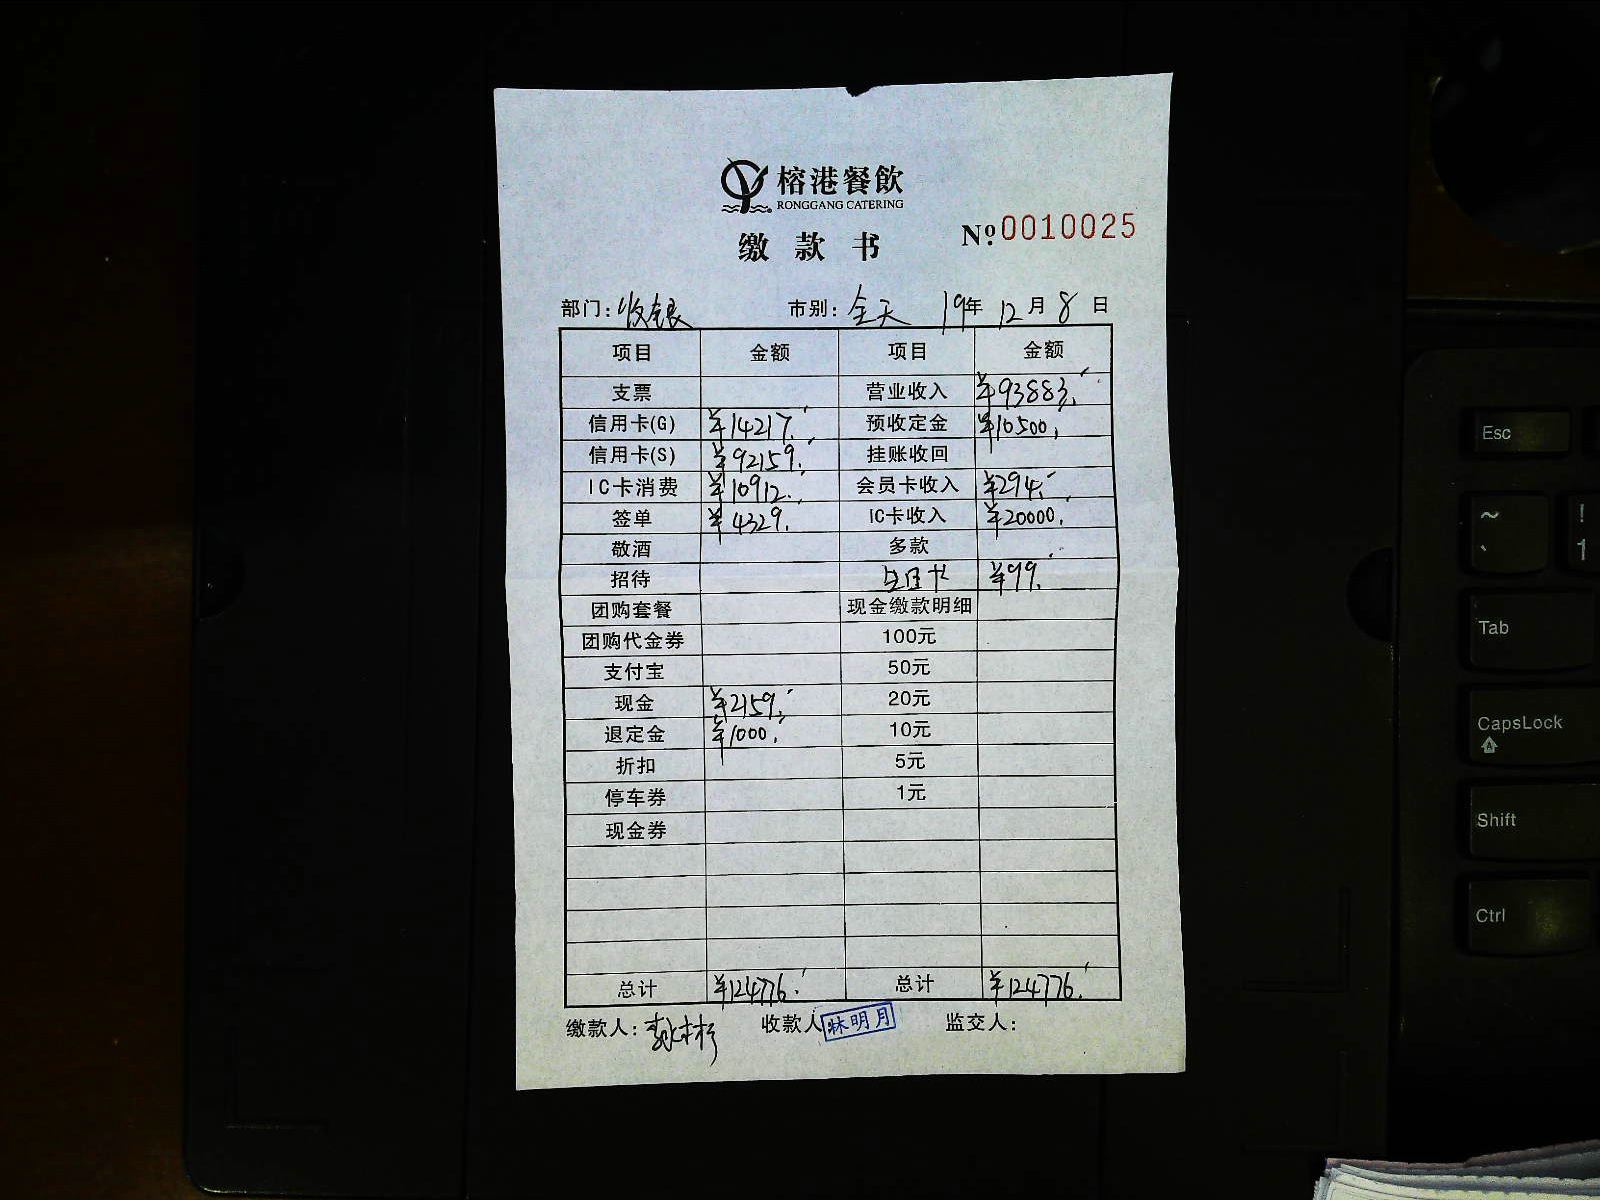 榕港餐飲
RONGGANG CATERING
缴款书 №0010025
部门：收银 市别：全天 19年12月8日
项目 金额 项目 金额
支票 营业收入 ¥93883.
信用卡(G) ¥14217. 预收定金 ¥10500.
信用卡(S) ¥92159. 挂账收回
IC卡消费 ¥10912. 会员卡收入 ¥294.
签单 ¥4329. IC卡收入 ¥20000.
敬酒 多款
招待 ¥99.
团购套餐 现金缴款明细
团购代金券 100元
支付宝 50元
现金 ¥2159. 20元
退定金 ¥1000. 10元
折扣 5元
停车券 1元
现金券
总计 ¥124776. 总计 ¥124776.
缴款人： 收款人 林明月 监交人：
Esc
~ ` ! 1
Tab
CapsLock
Shift
Ctrl